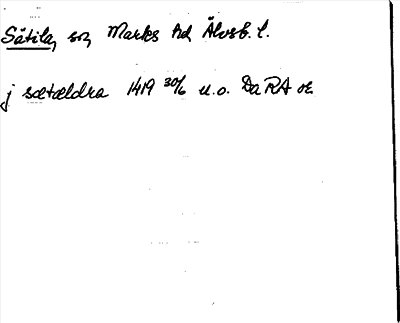 Sätila, sn Marks hd Älvsb. l.
j sætældra 1419 30/6 u.o. DaRA or.